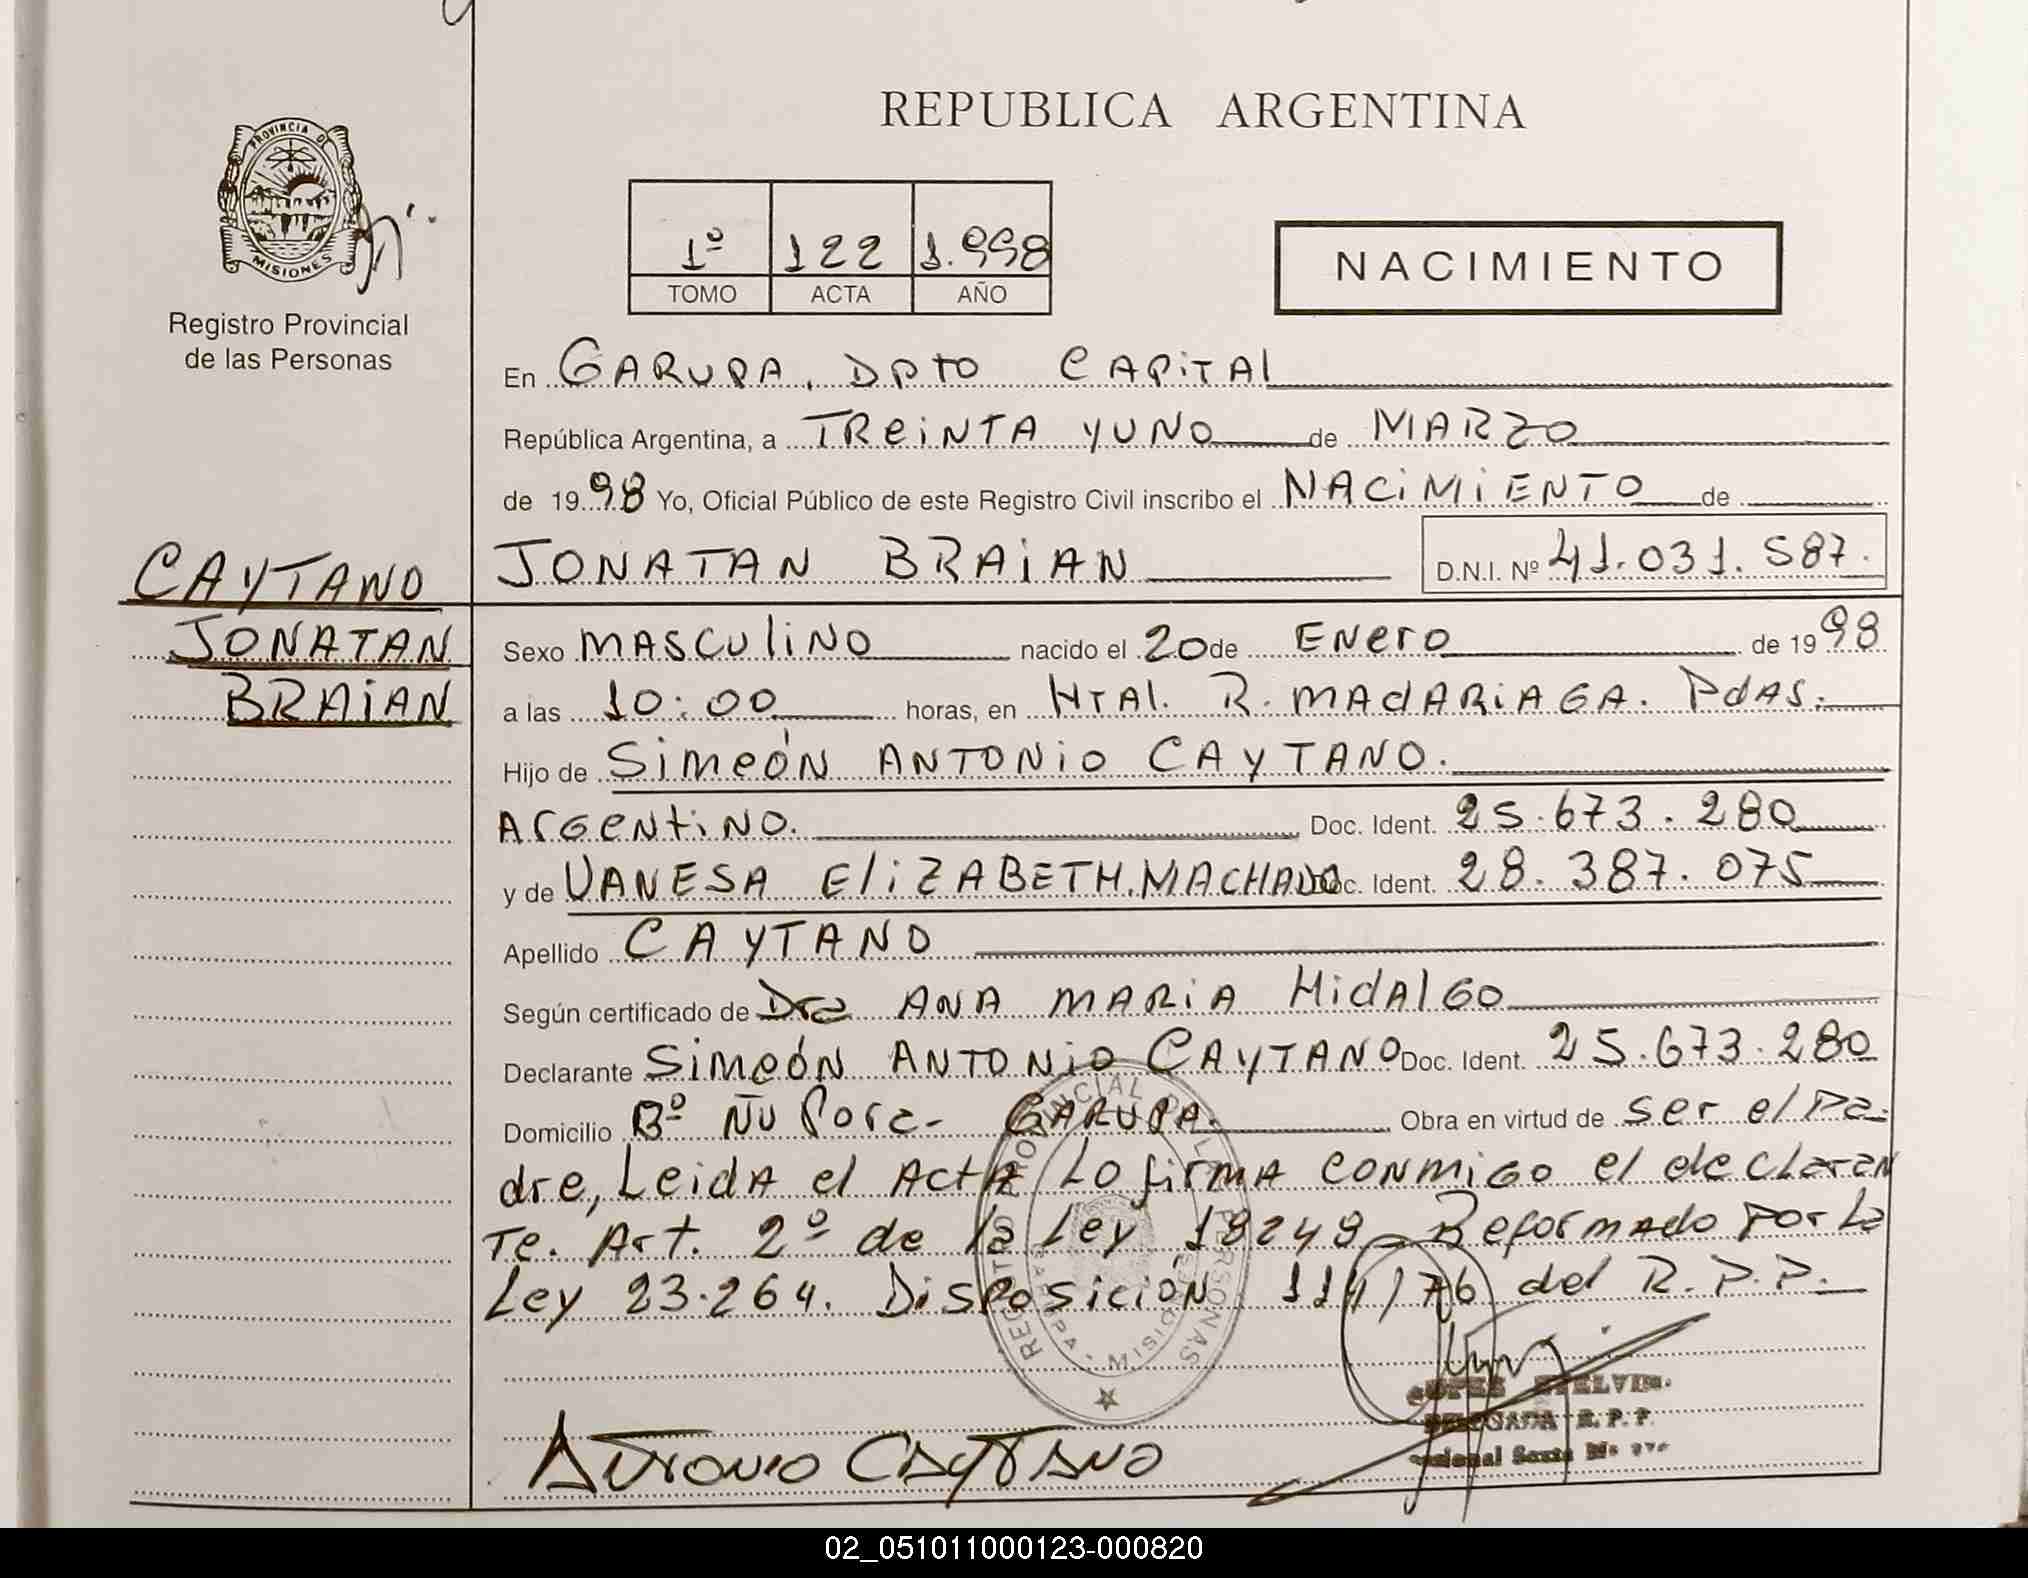 REPUBLICA ARGENTINA
PROVINCIA DE
MISIONES
Registro Provincial
de las Personas
1º 122 1.998
TOMO ACTA AÑO
NACIMIENTO
En GARUPA, DPTO CAPITAL
República Argentina, a TREINTA Y UNO de MARZO
de 1998 Yo, Oficial Público de este Registro Civil inscribo el NACIMIENTO de
CAYTANO
JONATAN
BRAIAN
JONATAN BRAIAN D.N.I. Nº 41.031.587.
Sexo MASCULINO nacido el 20 de ENERO de 1998
a las 10:00 horas, en HTAL. R. MADARIAGA. PDAS.
Hijo de SIMEÓN ANTONIO CAYTANO.
ARGENTINO. Doc. Ident. 25.673.280
y de VANESA ELIZABETH. MACHADO Doc. Ident. 28.387.075
Apellido CAYTANO
Según certificado de Dra ANA MARIA HIDALGO
Declarante SIMEÓN ANTONIO CAYTANO Doc. Ident. 25.673.280
Domicilio Bº ÑU PORA- GARUPA. Obra en virtud de ser el Pa-
dre, Leida el Acta Lo firma conmigo el declaran
Te. Art. 2º de la Ley 18248 Reformado Por La
Ley 23.264. Disposición 114/76 del R.P.P.
REGISTRO PROVINCIAL DE LAS PERSONAS
GARUPA - MISIONES
ANTONIO CAYTANO
DELEGADA R.P.P.
02_051011000123-000820